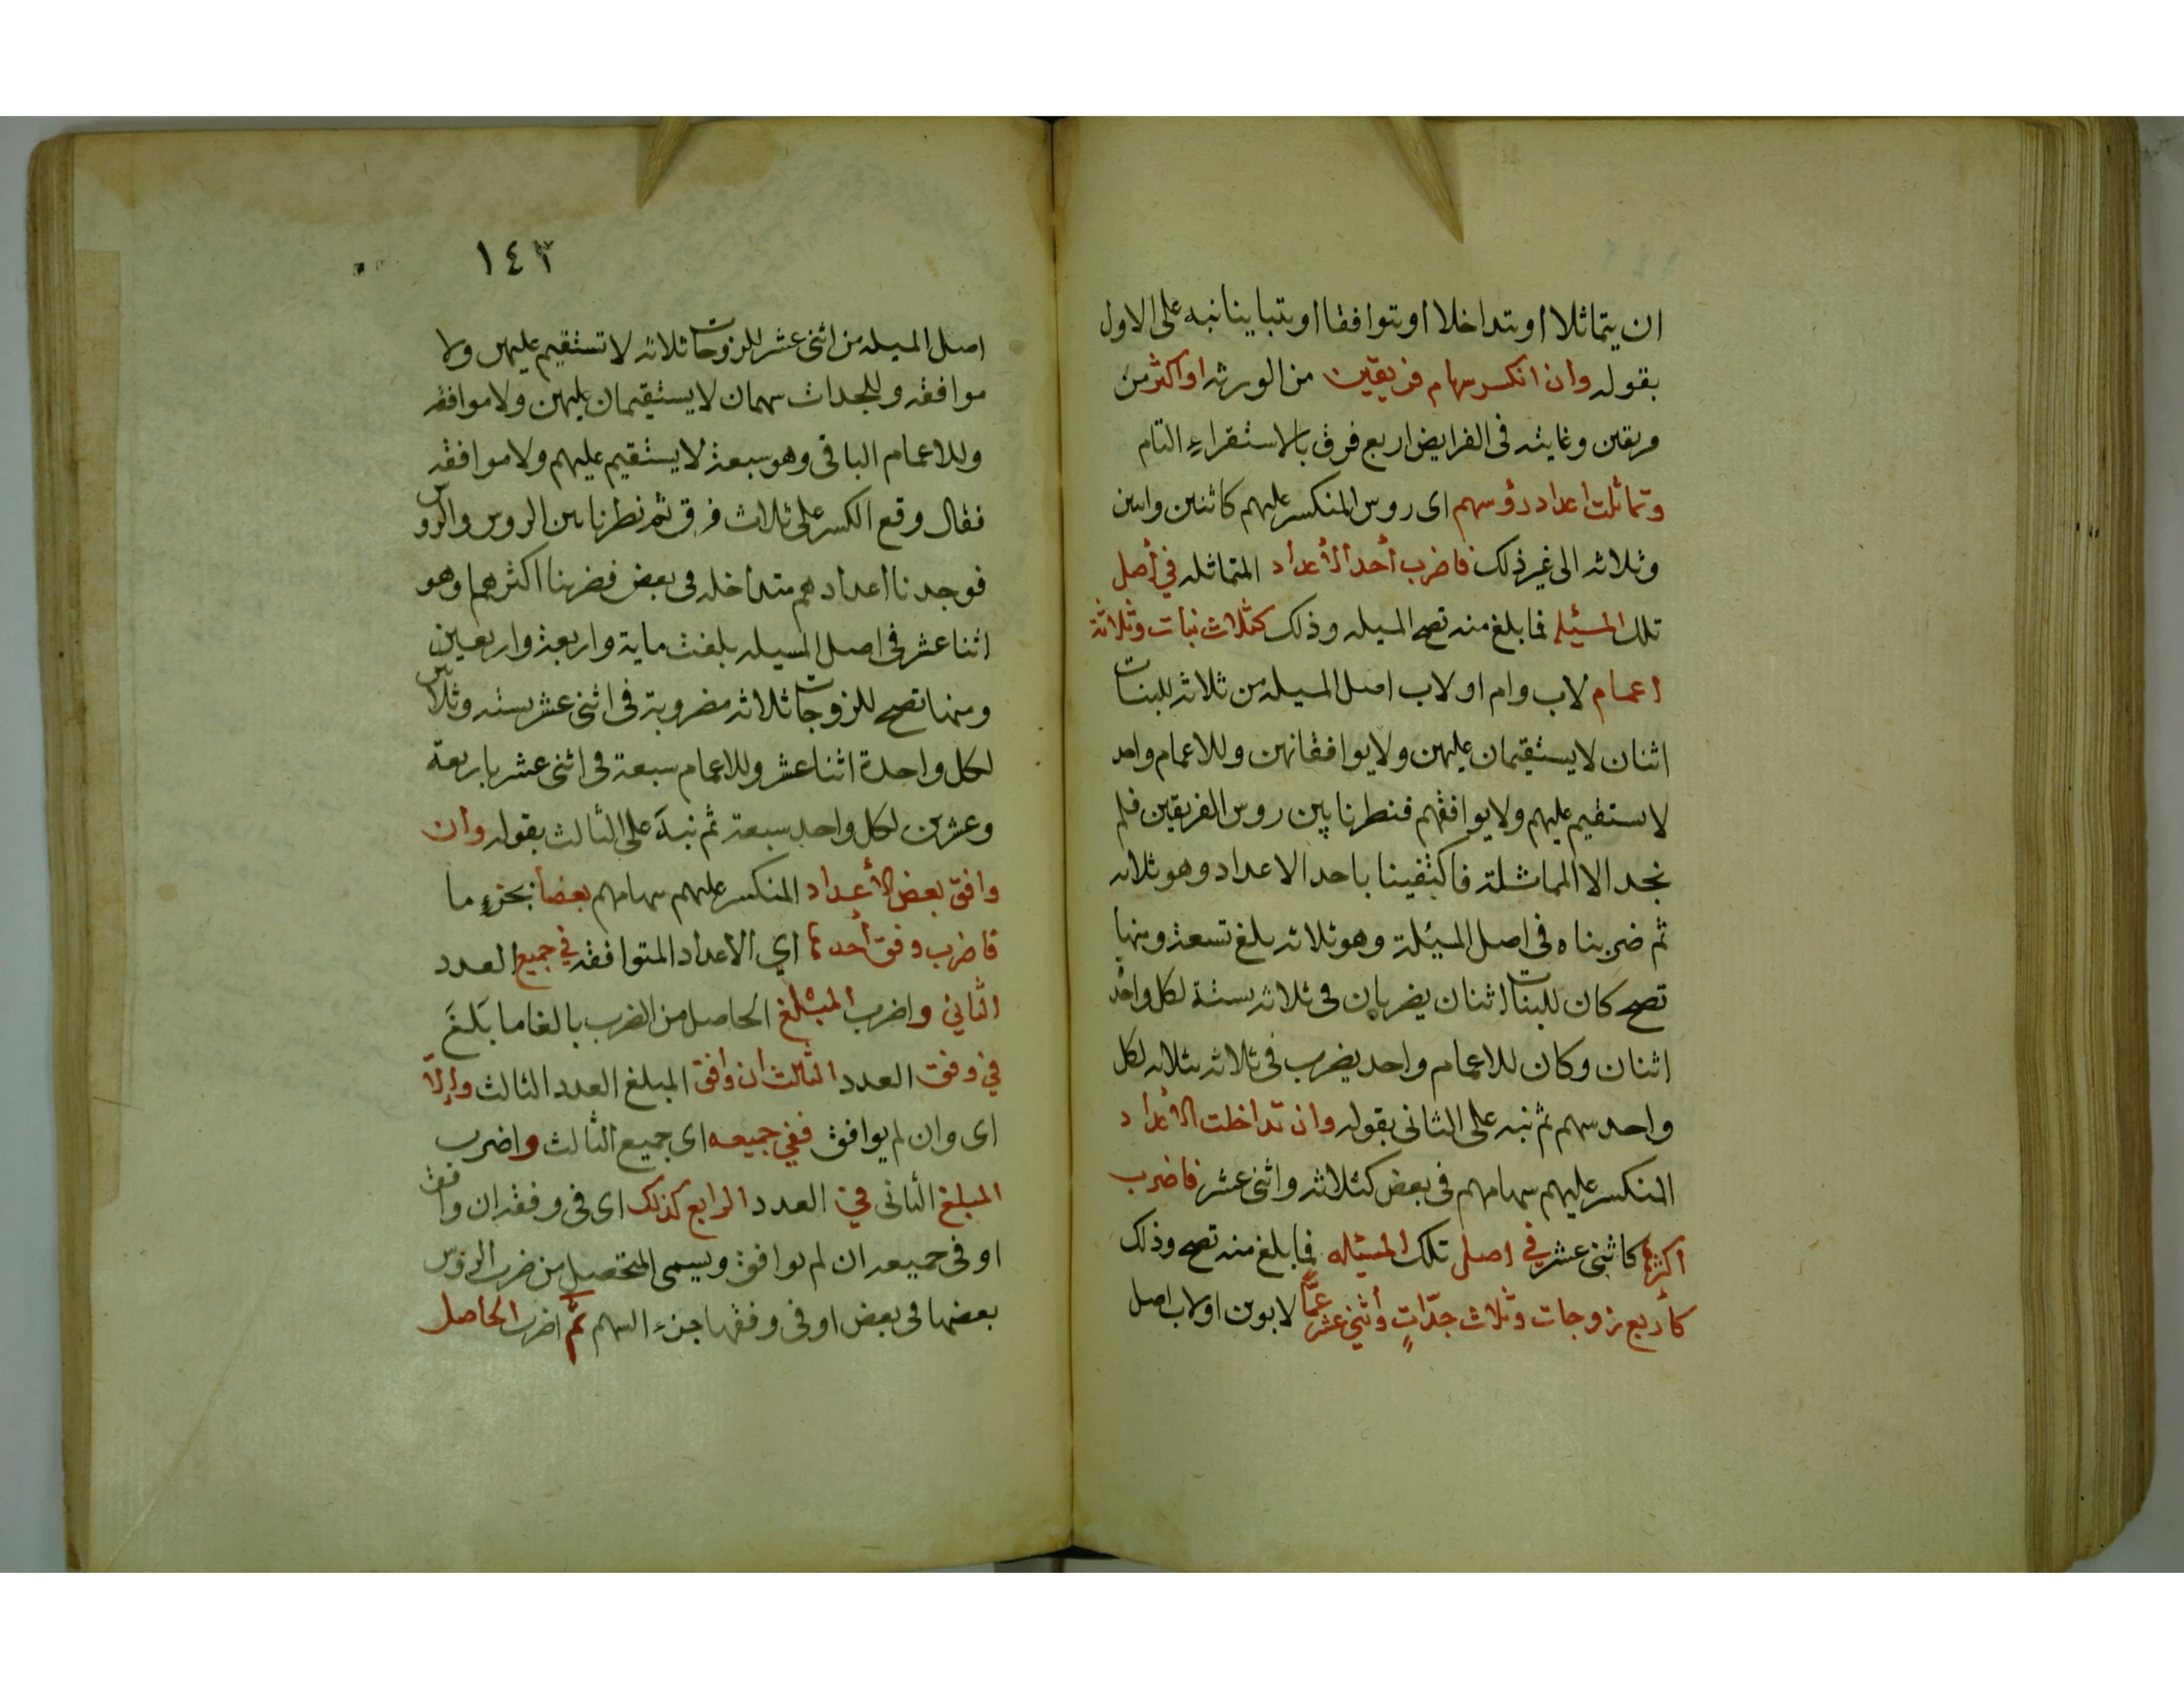 ان يتماثلا او يتداخلا او يتوافقا او يتباينا نبه على الاول
بقوله وان انكسر سهام فريقين من الورثه او اكثر من
فريقين وغايته فى الفرايض اربع فرق بالاستقراءِ التام
وتماثلت اعداد رؤسهم اى روس المنكسر عليهم كاثنين واثنين
وثلاثه الى غير ذلك فاضرب أحد الأعداد المتماثله في أصل
تلك المسئله فما بلغ منه تصح المسيله وذلك كثلاث بنات وثلاثة
اعمام لاب وام او لاب اصل المسيله من ثلاثه للبنات
اثنان لا يستقيمان عليهن ولا يوافقانهن وللاعمام واحد
لا يستقيم عليهم ولا يوافقهم فنظرنا بين روس الفريقين فلم
نجد الا المماثلة فاكتفينا باحد الاعداد وهو ثلاثه
ثم ضربناه فى اصل المسيئلة وهو ثلاثه بلغ تسعة ومنها
تصح كان للبنات اثنان يضربان فى ثلاثه بستة لكل واحدة
اثنان وكان للاعمام واحد يضرب فى ثلاثه بثلاثه لكل
واحد سهم ثم نبه على الثانى بقوله وان تداخلت الأعداد
المنكسر عليهم سهامهم فى بعض كثلاثه واثنى عشر فاضرب
اكثرهما كاثنى عشر في اصل تلك المسيئله فما بلغ منه تصح وذلك
كأربع زوجات وثلاث جدّاتٍ وأثني عشر عمًّا لابوين او لاب اصل
١٤٣
اصل المسيله من اثنى عشر للزوجات ثلاثه لا تستقيم عليهن ولا
موافقه وللجدات سهمان لا يستقيمان عليهن ولا موافقه
وللاعمام الباقى وهو سبعة لا يستقيم عليهم ولا موافقه
فقال وقع الكسر على ثلاث فرق ثم نظرنا بين الروس والروس
فوجدنا اعدادهم متداخله فى بعض فضربنا اكثرهم وهو
اثنا عشر فى اصل المسيله بلغت ماية واربعة واربعين
ومنها تصح للزوجات ثلاثه مضروبة فى اثنى عشر بسته وثلاثين
لكل واحدة اثنا عشر وللاعمام سبعة فى اثنى عشر باربعة
وعشرين لكل واحد سبعة ثم نبهَ على الثالث بقوله وان
وافق بعض الأعداد المنكسر عليهم سهامهم بعضاً بجزءٍ ما
فاضرب وفق أحدها اي الاعداد المتوافقه في جميع العدد
الثاني واضرب المبلغ الحاصل من الضرب بالغا ما بَلغَ
في وفق العدد الثالث ان وافق المبلغ العدد الثالث وإلّا
اى وان لم يوافق ففي جميعه اى جميع الثالث واضرب
المبلغ الثانى في العدد الرابع كذلك اى فى وفقه ان وافق
او فى جميعه ان لم يوافق ويسمى المتحصل من ضرب الروس
بعضها فى بعض او فى وفقها جزء السهم ثمّ اضرب الحاصل